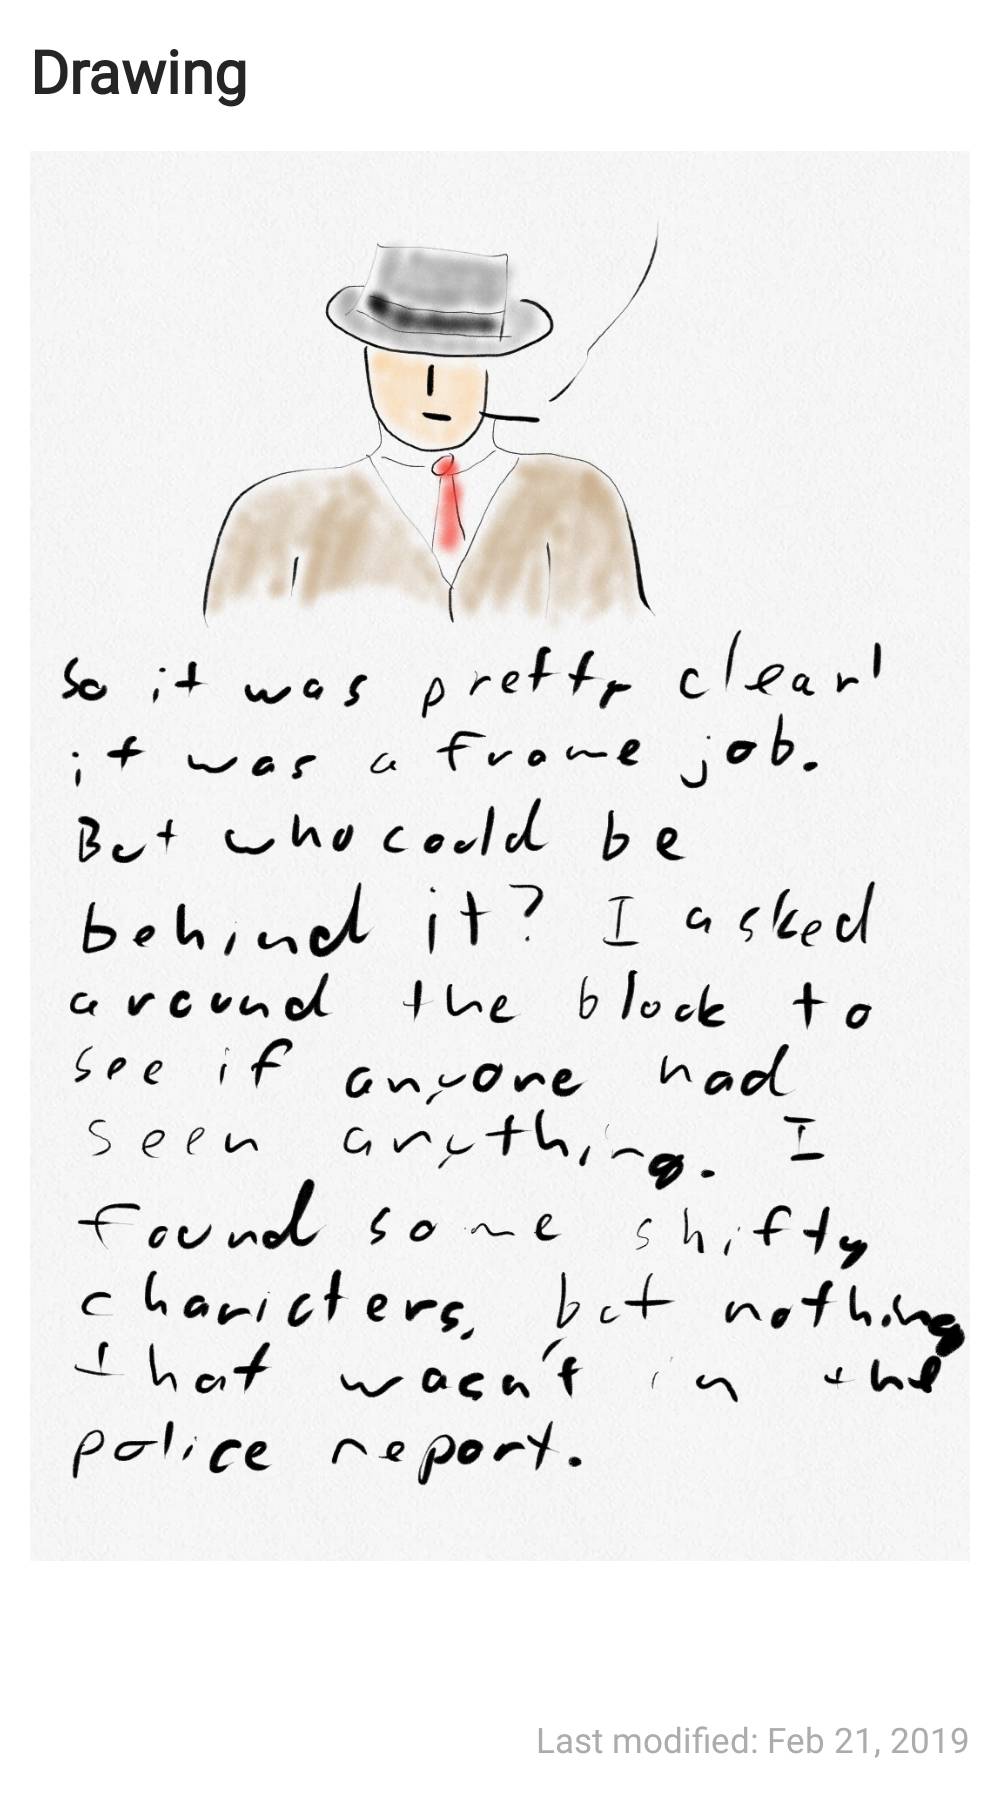 Drawing
So it was pretty clear
it was a frame job.
But who could be
behind it? I asked
around the block to
see if anyone had
seen anything. I
found some shifty
charicters, but nothing
that wasn't in the
police report.
Last modified: Feb 21, 2019